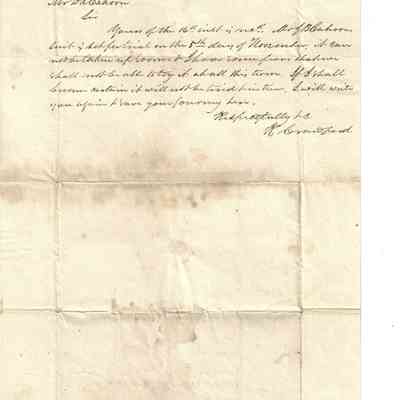 Mr Cahorn
Sir
Yours of the 16th inst is recd. Mr Cahorn
suit is set for trial on the 5th day of November, it can
not be taken up sooner & I have some fears that we
shall not be able to try it at all this term. If I shall
become certain it will not be tried I will write
you again & save your journey here.
Respectfully &c
R Crawford